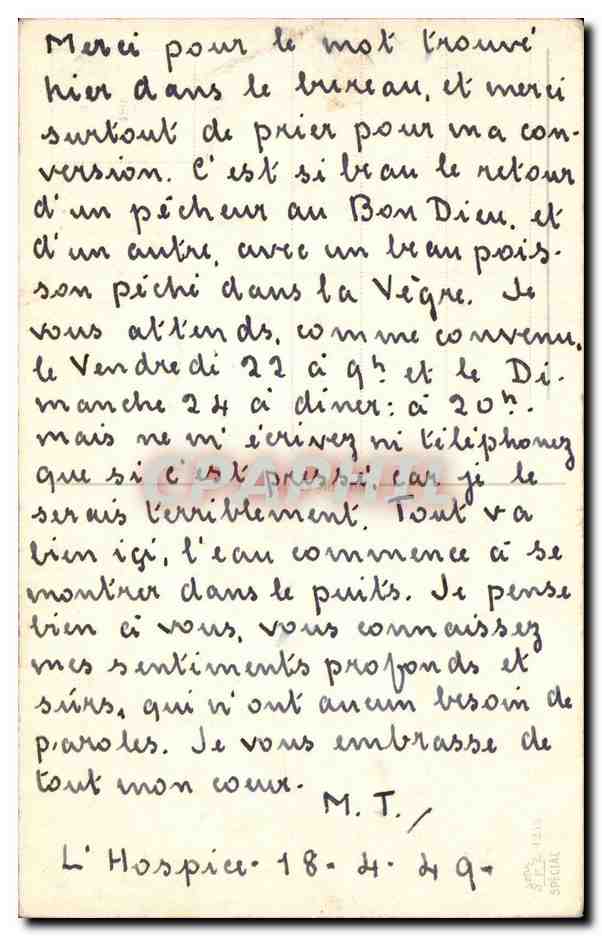 Merci pour le mot trouvé
hier dans le bureau, et merci
surtout de prier pour ma con-
version. C'est si beau le retour
d'un pécheur au Bon Dieu, et
d'un autre, avec un beau pois-
son péché dans la Vègre. Je
vous attends, comme convenu,
le Vendredi 22 à 9h et le Di-
manche 24 à diner: à 20h.
mais ne m'écrivez ni téléphonez
que si c'est pressé, car je le
serais terriblement. Tout va
bien içi, l'eau commence à se
montrer dans le puits. Je pense
bien à vous, vous connaissez
mes sentiments profonds et
sûrs, qui n'ont aucun besoin de
paroles. Je vous embrasse de
tout mon coeur.
M.T./
L'Hospice - 18 - 4 - 49 -
CPAPHIL
SPECIAL